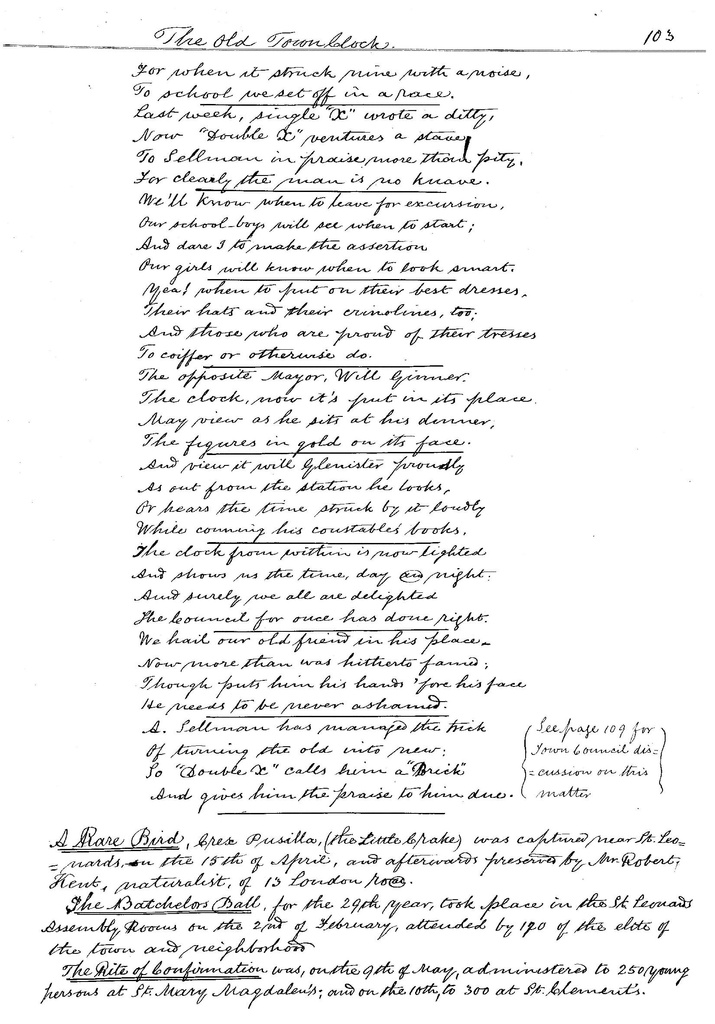 The Old Town Clock. 103
For when it struck nine with a noise,
To school we set off in a race.
Last week, single "X" wrote a ditty,
Now "Double X" ventures a stave
To Sellman in praise, more than pity,
For clearly the man is no knave.
We'll know when to leave for excursion,
Our school-boys will see when to start;
And dare I to make the assertion
Our girls will know when to look smart.
Yea! when to put on their best dresses,
Their hats and their crinolines, too;
And those who are proud of their tresses
To coiffer or otherwise do.
The opposite Mayor, Will Ginner,
The clock, now it's put in its place
May view as he sits at his dinner,
The figures in gold on its face.
And view it will Glenister proudly
As out from the station he looks,
Or hears the time struck by it loudly
While conning his constables' books.
The clock from within is now lighted
And shows us the time, day and night;
And surely we all are delighted
The Council for once has done right.
We hail our old friend in his place
Now more than was hitherto famed;
Though puts him his hands 'fore his face
He needs to be never ashamed.
A. Sellman has managed the trick
Of turning the old into new;
So "Double X" calls him a "Brick"
And gives him the praise to him due.
See page 109 for
Town Council dis=
=cussion on this
matter
A Rare Bird, Crex Pusilla, (the Little Crake) was captured near St. Leo=
=nards, on the 15th of April, and afterwards preserved by Mr. Robert
Kent, naturalist, of 13 London road.
The Batchelors Ball, for the 29th year, took place in the St. Leonards
Assembly Rooms on the 2nd of February, attended by 190 of the elite of
the town and neighborhood
The Rite of Confirmation was, on the 9th of May, administered to 250 young
persons at St. Mary Magdalen's; and on the 10th, to 300 at St. Clement's.